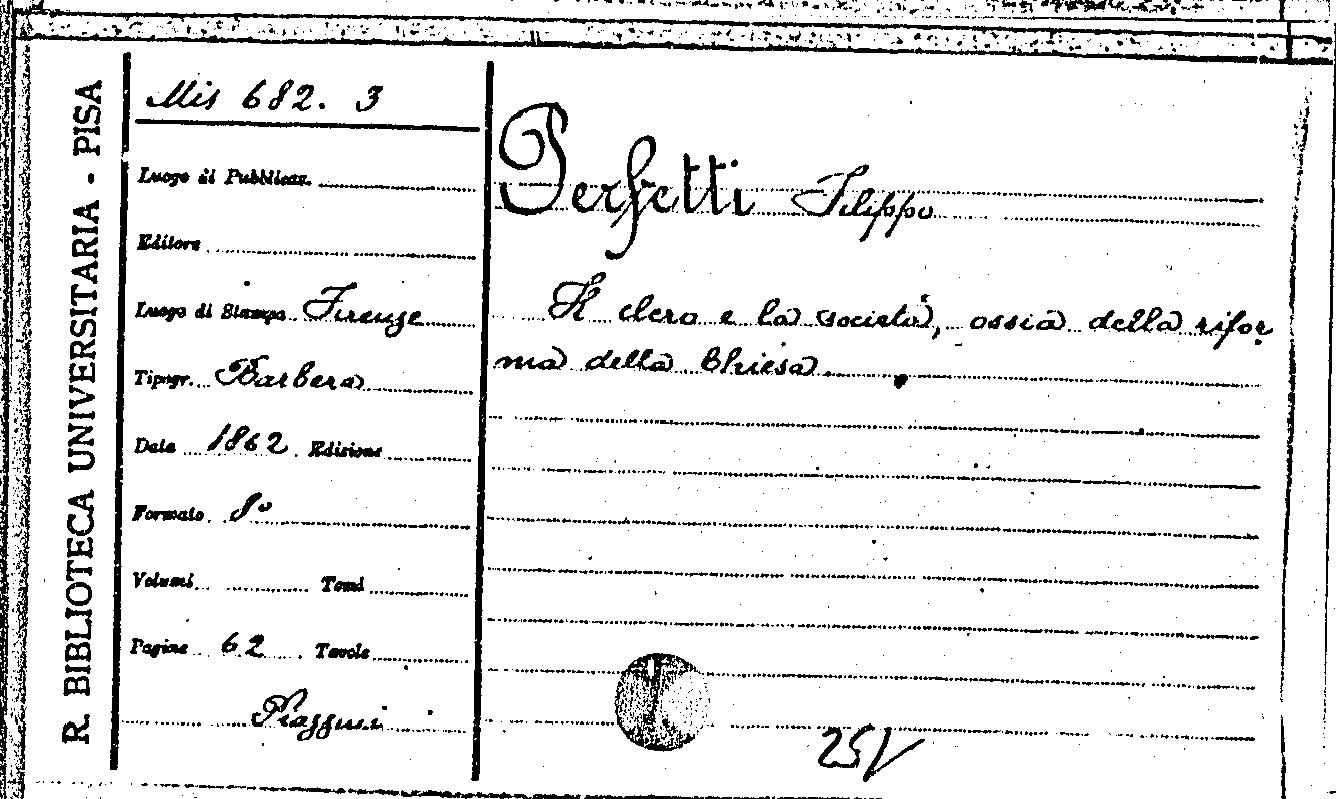 R. BIBLIOTECA UNIVERSITARIA - PISA
Mis 682. 3
Luogo di Pubblicaz.
Editore
Luogo di Stampa Firenze
Tipogr. Barbera
Data 1862 Edizione
Formato 8°
Volumi Tomi
Pagine 62 Tavole
Piazzini
Perfetti Filippo
Il clero e la società, ossia della rifor
ma della Chiesa.